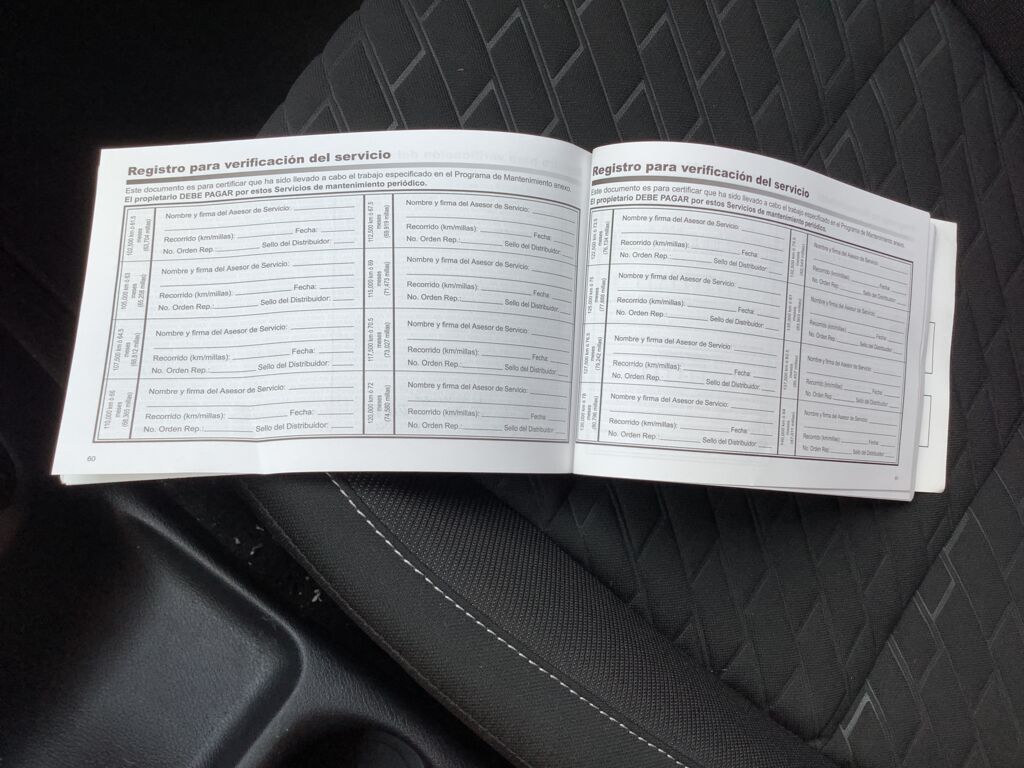 Registro para verificación del servicio
Este documento es para certificar que ha sido llevado a cabo el trabajo especificado en el Programa de Mantenimiento anexo.
El propietario DEBE PAGAR por estos Servicios de mantenimiento periódico.
102,500 km ó 61.5
meses
(63,704 millas)
Nombre y firma del Asesor de Servicio:
Recorrido (km/millas): Fecha:
No. Orden Rep.: Sello del Distribuidor:
105,000 km ó 63
meses
(65,258 millas)
Nombre y firma del Asesor de Servicio:
Recorrido (km/millas): Fecha:
No. Orden Rep.: Sello del Distribuidor:
107,500 km ó 64.5
meses
(66,812 millas)
Nombre y firma del Asesor de Servicio:
Recorrido (km/millas): Fecha:
No. Orden Rep.: Sello del Distribuidor:
110,000 km ó 66
meses
(68,365 millas)
Nombre y firma del Asesor de Servicio:
Recorrido (km/millas): Fecha:
No. Orden Rep.: Sello del Distribuidor:
112,500 km ó 67.5
meses
(69,919 millas)
Nombre y firma del Asesor de Servicio:
Recorrido (km/millas): Fecha:
No. Orden Rep.: Sello del Distribuidor:
115,000 km ó 69
meses
(71,473 millas)
Nombre y firma del Asesor de Servicio:
Recorrido (km/millas): Fecha:
No. Orden Rep.: Sello del Distribuidor:
117,500 km ó 70.5
meses
(73,027 millas)
Nombre y firma del Asesor de Servicio:
Recorrido (km/millas): Fecha:
No. Orden Rep.: Sello del Distribuidor:
120,000 km ó 72
meses
(74,580 millas)
Nombre y firma del Asesor de Servicio:
Recorrido (km/millas): Fecha:
No. Orden Rep.: Sello del Distribuidor:
60
Registro para verificación del servicio
Este documento es para certificar que ha sido llevado a cabo el trabajo especificado en el Programa de Mantenimiento anexo.
El propietario DEBE PAGAR por estos Servicios de mantenimiento periódico.
122,500 km ó 73.5
meses
(76,134 millas)
Nombre y firma del Asesor de Servicio:
Recorrido (km/millas): Fecha:
No. Orden Rep.: Sello del Distribuidor:
125,000 km ó 75
meses
(77,688 millas)
Nombre y firma del Asesor de Servicio:
Recorrido (km/millas): Fecha:
No. Orden Rep.: Sello del Distribuidor:
127,500 km ó 76.5
meses
(79,242 millas)
Nombre y firma del Asesor de Servicio:
Recorrido (km/millas): Fecha:
No. Orden Rep.: Sello del Distribuidor:
130,000 km ó 78
meses
(80,796 millas)
Nombre y firma del Asesor de Servicio:
Recorrido (km/millas): Fecha:
No. Orden Rep.: Sello del Distribuidor:
Nombre y firma del Asesor de Servicio:
Recorrido (km/millas): Fecha:
No. Orden Rep.: Sello del Distribuidor:
Nombre y firma del Asesor de Servicio:
Recorrido (km/millas): Fecha:
No. Orden Rep.: Sello del Distribuidor:
Nombre y firma del Asesor de Servicio:
Recorrido (km/millas): Fecha:
No. Orden Rep.: Sello del Distribuidor:
Nombre y firma del Asesor de Servicio:
Recorrido (km/millas): Fecha:
No. Orden Rep.: Sello del Distribuidor: